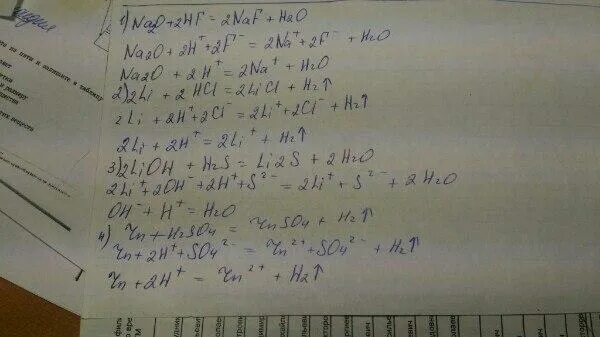 1) Na2O+2HF=2NaF+H2O
Na2O+2H⁺+2F⁻=2Na⁺+2F⁻+H2O
Na2O+2H⁺=2Na⁺+H2O
2) 2Li+2HCl=2LiCl+H2↑
2Li+2H⁺+2Cl⁻=2Li⁺+2Cl⁻+H2↑
2Li+2H⁺=2Li⁺+H2↑
3) 2LiOH+H2S=Li2S+2H2O
2Li⁺+2OH⁻+2H⁺+S²⁻=2Li⁺+S²⁻+2H2O
OH⁻+H⁺=H2O
4) Zn+H2SO4=ZnSO4+H2↑
Zn+2H⁺+SO4²⁻=Zn²⁺+SO4²⁻+H2↑
Zn+2H⁺=Zn²⁺+H2↑